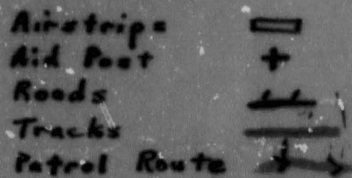 Airstrips
Aid Post
Roads
Tracks
Patrol Route